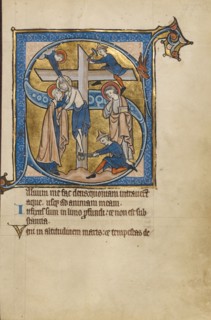 aluum me fac deus: quoniam intrauerunt
aque usq; ad animam meam.
Infixus sum in limo profundi: et non est sub
stantia.
Veni in altitudinem maris: et tempestas de